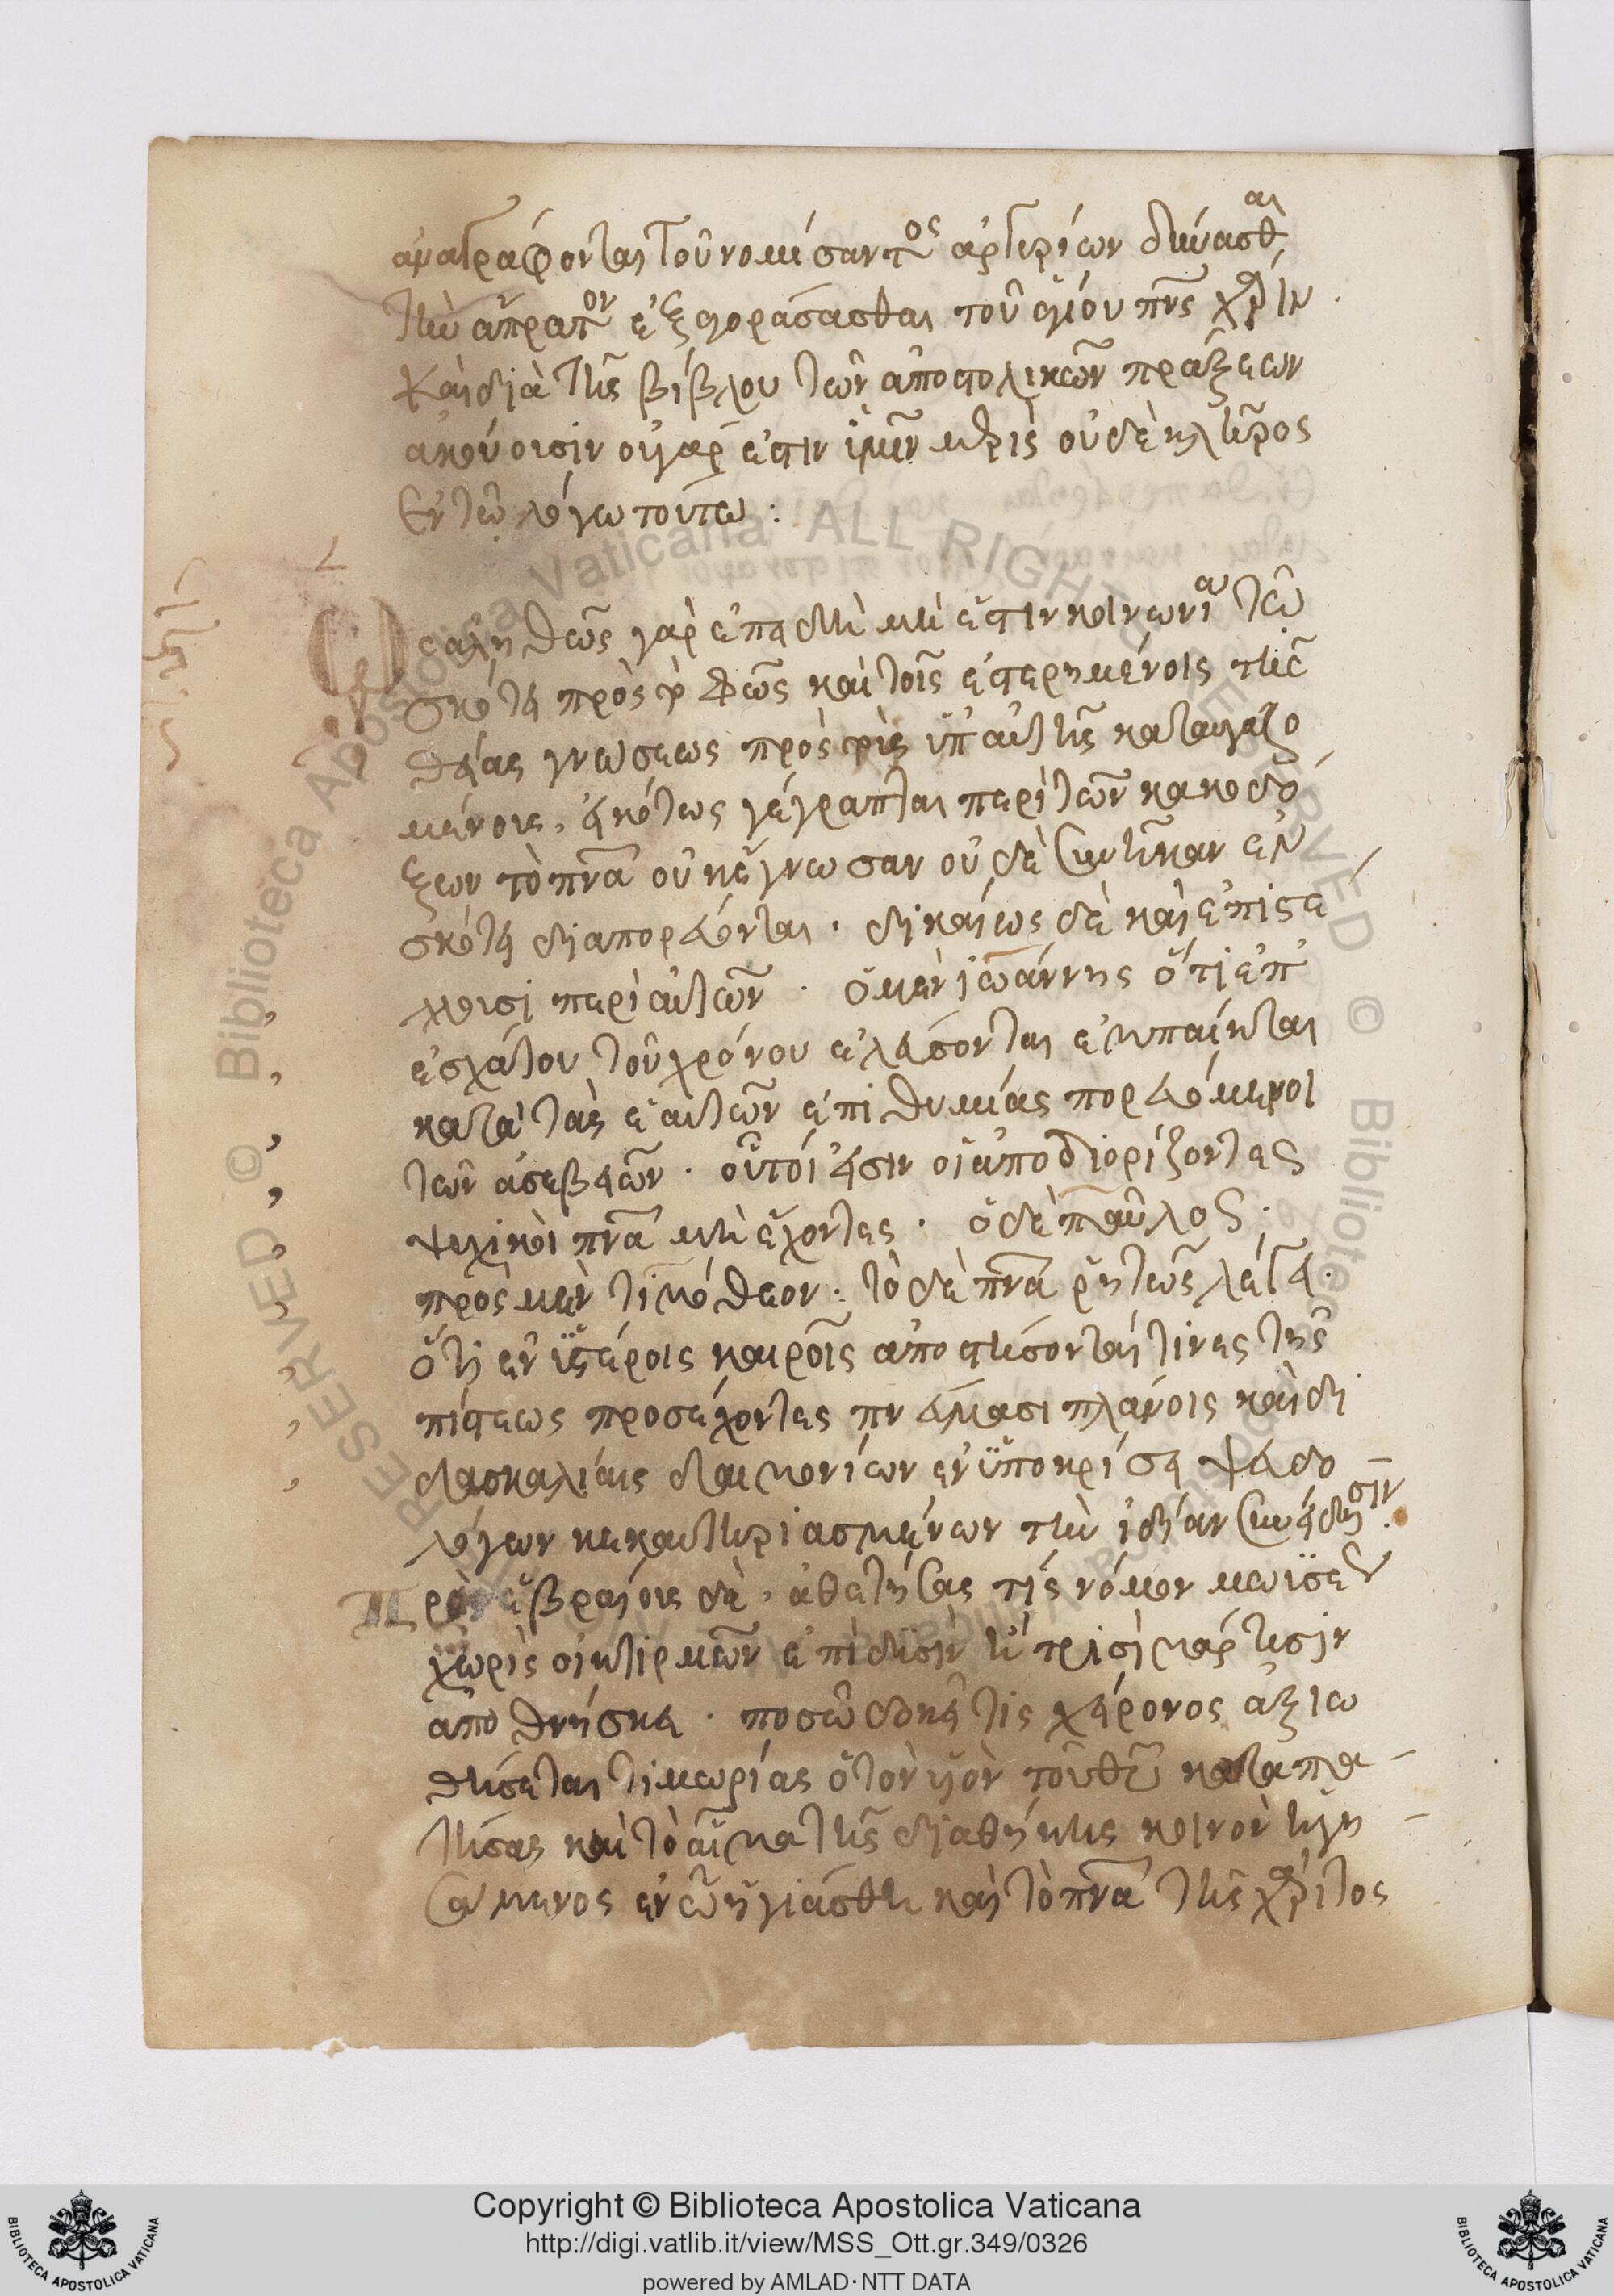 ἀναγράφονται τοῦ νομίσαντος ἀργυρίων δύνασθαι
τὴν ἄπρατον ἐξαγοράσασθαι τοῦ ἁγίου πνς χάριν
καὶ διὰ τῆς βίβλου τῶν ἀποστολικῶν πράξεων
ἀκούουσιν οὐ γάρ ἐστιν ὑμῖν μερὶς οὐδὲ κλῆρος
ἐν τῷ λόγω τούτω :
ς ἀληθῶς γὰρ ἐπειδὴ μή ἐστιν κοινωνία τῶ
σκότει πρὸς φῶς καὶ τοῖς ἐστερημένοις τῆς
θείας γνώσεως πρὸς τοὺς ὑπ' αὐτῆς καταυγαζο
μένους, εἰκότως γέγραπται περὶ τῶν κακοδό
ξων τὸ πνα οὐκ ἔγνωσαν οὐδὲ συνῆκαν ἐν
σκότει διαπορεύονται · δικαίως δὲ καὶ ἐπιστέ
λουσι περὶ αὐτῶν · ὁ μὲν ἰωάννης ὅτι ἐπ'
ἐσχάτου τοῦ χρόνου ἐλεύσονται ἐμπαίκται
κατὰ τὰς ἑαυτῶν ἐπιθυμίας πορευόμενοι
τῶν ἀσεβειῶν · οὗτοί εἰσιν οἱ ἀποδιορίζοντες
ψυχικοὶ πνα μὴ ἔχοντες · ὁ δὲ παῦλος ·
πρὸς μὲν τιμόθεον · τὸ δὲ πνα ῥητῶς λέγει ·
ὅτι ἐν ὑστέροις καιροῖς ἀποστήσονταί τινες τῆς
πίστεως προσέχοντες πνεύμασι πλάνοις καὶ δι
δασκαλίαις δαιμονίων ἐν ὑποκρίσει ψευδο
λόγων κεκαυτηριασμένων τὴν ἰδίαν συνείδησιν ·
Πρὸς ἑβραίους δὲ, ἀθετήσας τίς νόμον μωϋσέως
χωρὶς οἰκτιρμῶν ἐπὶ δυσὶν ἢ τρισὶ μάρτυσιν
ἀποθνήσκει · πόσω δοκεῖτε χείρονος ἀξιω
θήσεται τιμωρίας ὁ τὸν υἱὸν τοῦ θυ καταπα
τήσας καὶ τὸ αἷμα τῆς διαθήκης κοινὸν ἡγη
σάμενος ἐν ὧ ἡγιάσθη καὶ τὸ πνα τῆς χάριτος
Copyright © Biblioteca Apostolica Vaticana
http://digi.vatlib.it/view/MSS_Ott.gr.349/0326
powered by AMLAD·NTT DATA
BIBLIOTECA APOSTOLICA VATICANA
BIBLIOTECA APOSTOLICA VATICANA